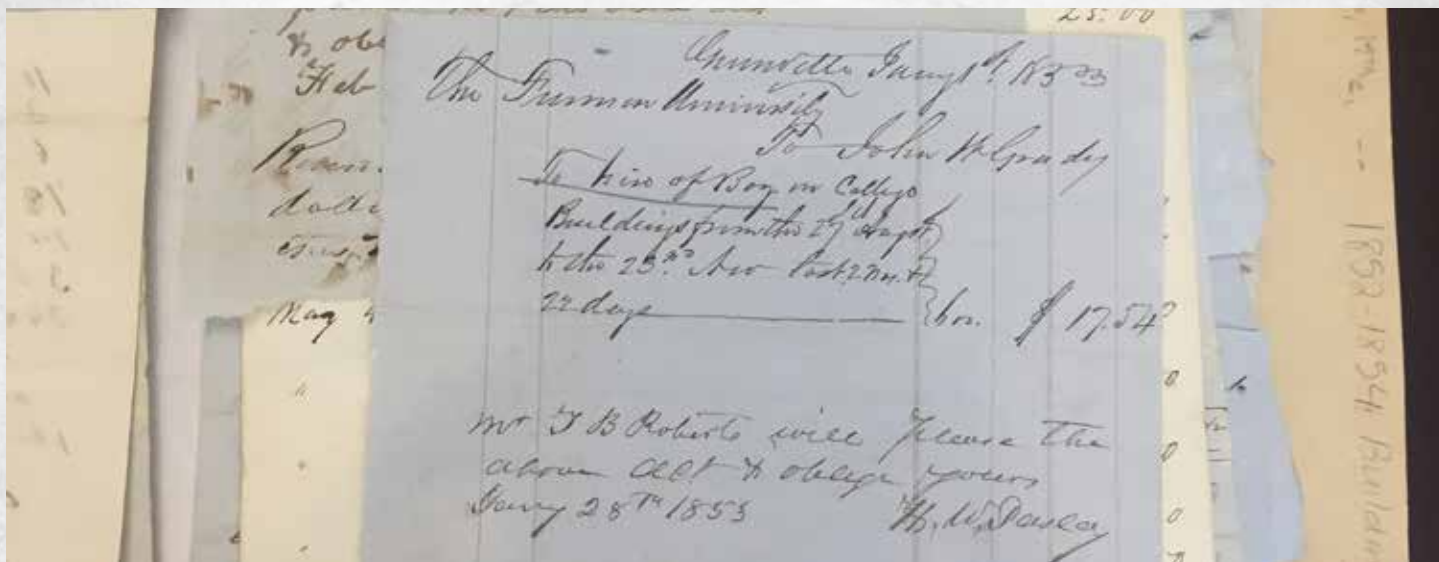 25.00
to obl
Feb
Recev.
dolla
May
Greenville Jany 1st 1853
The Furman University
To John W Grady
To hire of Boy on College
Buildings from the 2d Augst
to the 23rd Nov last 2 Mos. &
22 days hos. $ 17.54
Mr T B Roberts will Please the
above acct & oblige yours
Jany 28th 1853
1852-1854 Building